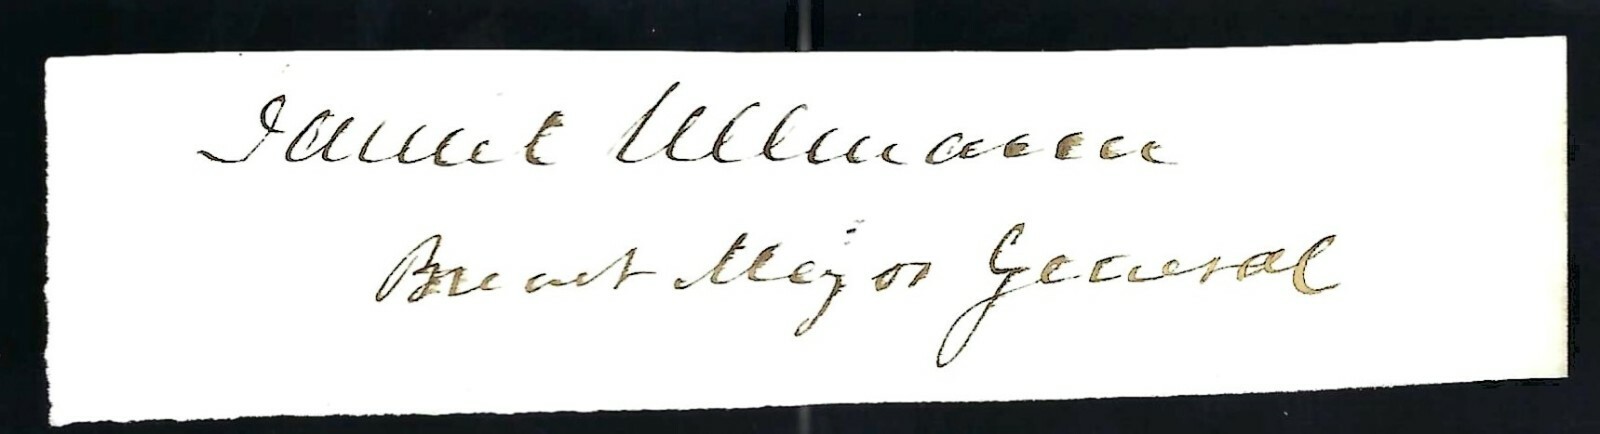 Daniel Ullmann
Brevet Major General